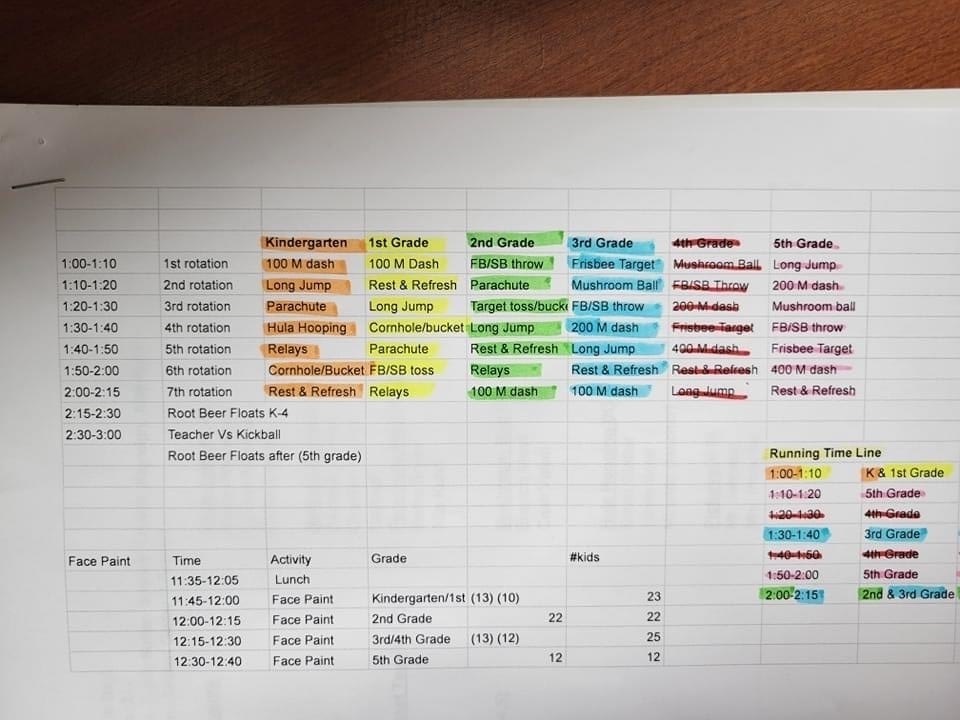 Kindergarten 1st Grade 2nd Grade 3rd Grade 4th Grade 5th Grade
1:00-1:10 1st rotation 100 M dash 100 M Dash FB/SB throw Frisbee Target Mushroom Ball Long Jump
1:10-1:20 2nd rotation Long Jump Rest & Refresh Parachute Mushroom Ball FB/SB Throw 200 M dash
1:20-1:30 3rd rotation Parachute Long Jump Target toss/buck FB/SB throw 200 M dash Mushroom ball
1:30-1:40 4th rotation Hula Hooping Cornhole/bucket Long Jump 200 M dash Frisbee Target FB/SB throw
1:40-1:50 5th rotation Relays Parachute Rest & Refresh Long Jump 400 M dash Frisbee Target
1:50-2:00 6th rotation Cornhole/Bucket FB/SB toss Relays Rest & Refresh Rest & Refresh 400 M dash
2:00-2:15 7th rotation Rest & Refresh Relays 100 M dash 100 M dash Long Jump Rest & Refresh
2:15-2:30 Root Beer Floats K-4
2:30-3:00 Teacher Vs Kickball
Root Beer Floats after (5th grade)
Running Time Line
1:00-1:10 K & 1st Grade
1:10-1:20 5th Grade
1:20-1:30 4th Grade
1:30-1:40 3rd Grade
1:40-1:50 4th Grade
1:50-2:00 5th Grade
2:00-2:15 2nd & 3rd Grade
Face Paint Time Activity Grade #kids
11:35-12:05 Lunch
11:45-12:00 Face Paint Kindergarten/1st (13) (10) 23
12:00-12:15 Face Paint 2nd Grade 22 22
12:15-12:30 Face Paint 3rd/4th Grade (13) (12) 25
12:30-12:40 Face Paint 5th Grade 12 12